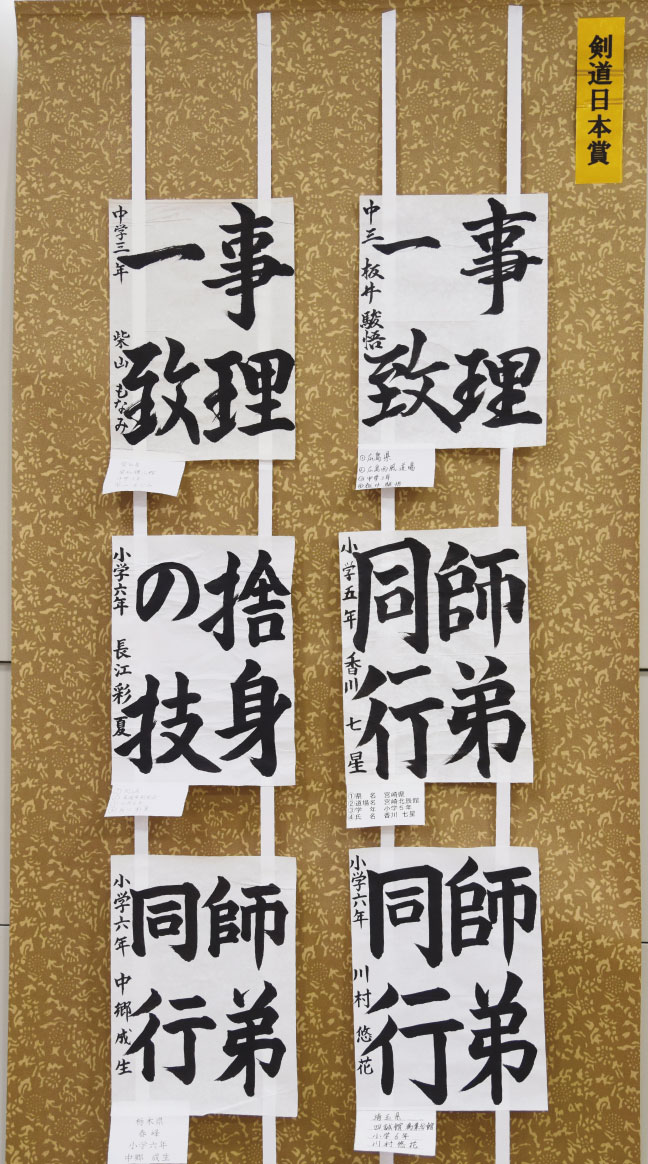 剣道日本賞
事理
一致
中三 板井駿悟
①広島県
事理
一致
中学三年 柴山もなみ
師弟
同行
小学五年 香川七星
①県 名 宮崎県
②道場名 宮崎北辰館
③学 年 小学5年
④氏 名 香川 七星
捨身
の技
小学六年 長江彩夏
師弟
同行
小学六年 川村悠花
埼玉県
小学6年
川村悠花
師弟
同行
小学六年 中郷成生
栃木県
小学六年
中郷 成生